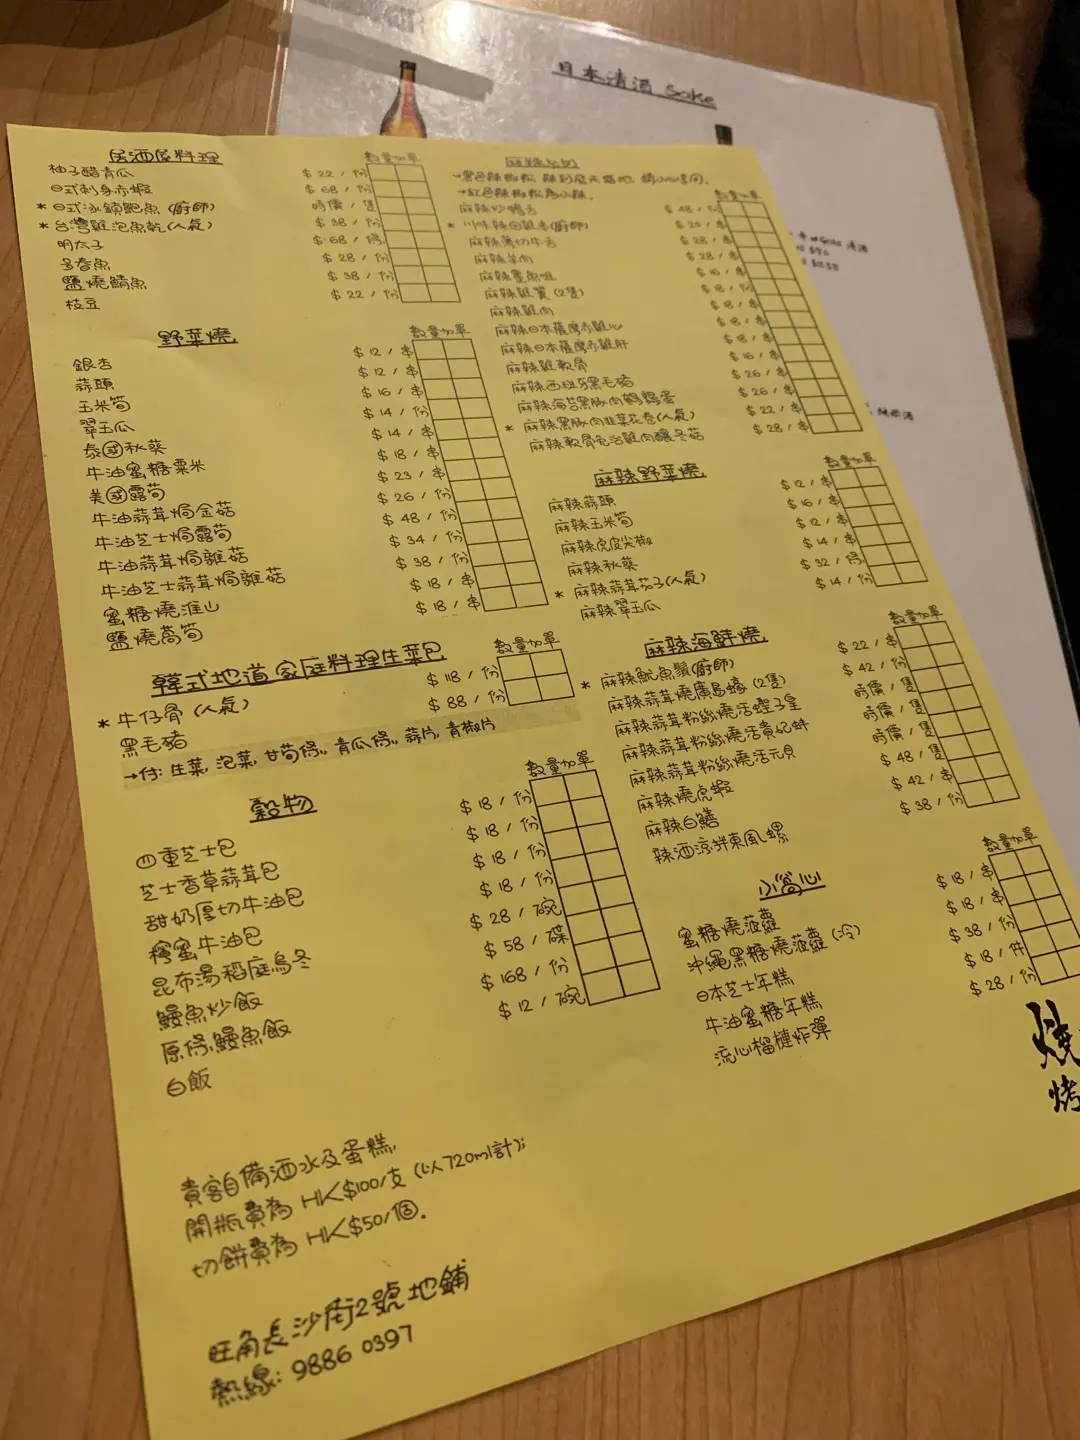 日本清酒 Sake
居酒屋料理
數量加單
柚子醋青瓜 $22/份
日式刺身赤蝦 $68/份
* 日式冰鎮鮑魚(廚師) 時價/隻
* 台灣雞泡魚乾(人氣) $38/份
明太子 $68/條
多春魚 $28/份
鹽燒鯖魚 $38/份
枝豆 $22/份
野菜燒
數量加單
銀杏 $12/串
蒜頭 $12/串
玉米筍 $16/串
翠玉瓜 $14/份
泰國秋葵 $14/串
牛油蜜糖粟米 $18/串
美國露筍 $23/串
牛油蒜茸焗金菇 $26/份
牛油芝士焗露筍 $48/份
牛油蒜茸焗雜菇 $34/份
牛油芝士蒜茸焗雜菇 $38/份
蜜糖燒淮山 $18/串
鹽燒萵筍 $18/串
韓式地道家庭料理生菜包
數量加單
* 牛仔骨(人氣) $118/份
黑毛豬 $88/份
→付: 生菜, 泡菜, 甘筍條, 青瓜條, 蒜片, 青椒片
穀物
數量加單
四重芝士包 $18/份
芝士香草蒜茸包 $18/份
甜奶厚切牛油包 $18/份
檸蜜牛油包 $18/份
昆布湯稻庭烏冬 $28/碗
鰻魚炒飯 $58/碟
原條鰻魚飯 $168/份
白飯 $12/碗
貴客自備酒水及蛋糕,
開瓶費為 HK$100/支 (以720ml計);
切餅費為 HK$50/個.
旺角長沙街2號地鋪
熱線: 9886 0397
數量加單
→紅色辣椒為小辣.
$48/份
* 川味辣白雞串(廚師) $20/串
麻辣薄切牛舌 $28/串
麻辣羊肉 $28/串
麻辣雞翼(2隻)
麻辣雞肉
麻辣日本薩摩赤雞心
麻辣日本薩摩赤雞肝
麻辣雞軟骨
麻辣西班牙黑毛豬 $16/串
麻辣海苔黑豚肉鵪鶉蛋 $26/串
* 麻辣黑豚肉韭菜花卷(人氣)
麻辣軟骨免治雞肉釀冬菇 $28/串
麻辣野菜燒
數量加單
麻辣蒜頭 $12/串
麻辣玉米筍 $16/串
麻辣虎皮尖椒 $12/串
麻辣秋葵 $14/串
* 麻辣蒜茸茄子(人氣) $32/條
麻辣翠玉瓜 $14/份
麻辣海鮮燒
數量加單
* 麻辣魷魚鬚(廚師) $22/串
麻辣蒜茸燒廣島蠔(2隻) $42/份
麻辣蒜茸粉絲燒活蟶子皇 時價/隻
麻辣蒜茸粉絲燒活貴妃蚌 時價/隻
麻辣蒜茸粉絲燒活元貝 時價/隻
麻辣燒虎蝦 $48/隻
麻辣白鱔 $42/串
辣酒涼拌東風螺 $38/份
小窩心
數量加單
蜜糖燒菠蘿 $18/串
沖繩黑糖燒菠蘿(冷) $18/串
日本芝士年糕 $38/份
牛油蜜糖年糕 $18/件
流心榴槤炸彈 $28/份
燒
烤